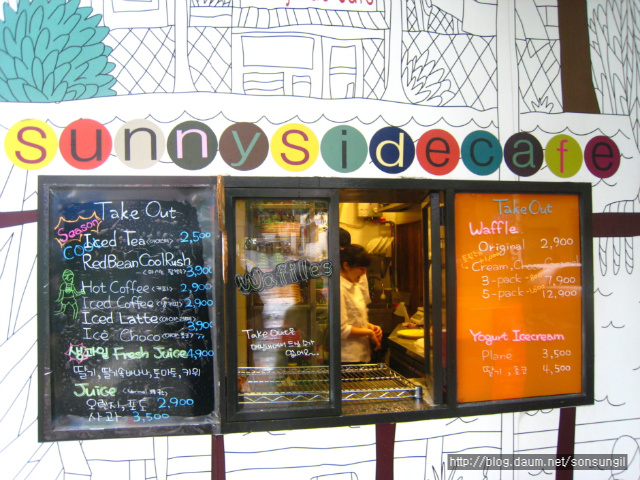 sunnySidecafe
Take Out
Season
Iced Tea 2,500
RedBeanCoolRush
3,900
Hot Coffee (커피) 2,900
Iced Coffee 2,900
Iced Latte
Ice Choco 3,900
생과일 Fresh Juice 4,900
딸기, 딸기&바나나, 토마토, 키위
Juice
오렌지, 포도 2,900
사과 3,500
The
Waffle's
Take Out은
Take Out
Waffle
Original 2,900
Cream, Choco
3-pack 7,900
5-pack 12,900
Yogurt Icecream
Plane 3,500
딸기, 초코 4,500
http://blog.daum.net/sonsungil